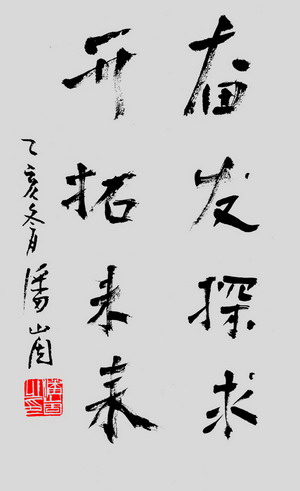 奋发探求
开拓未来
乙亥冬月潘